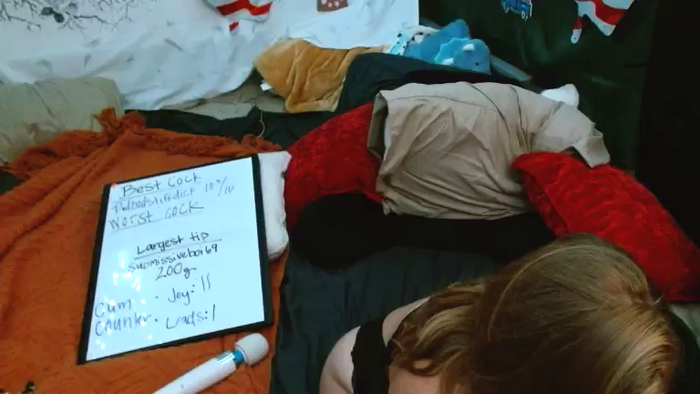 Best Cock
10/10
Worst Cock
Largest tip
submissiveboi69
200g
Cum : Joy: ||
Counter : Lads: |